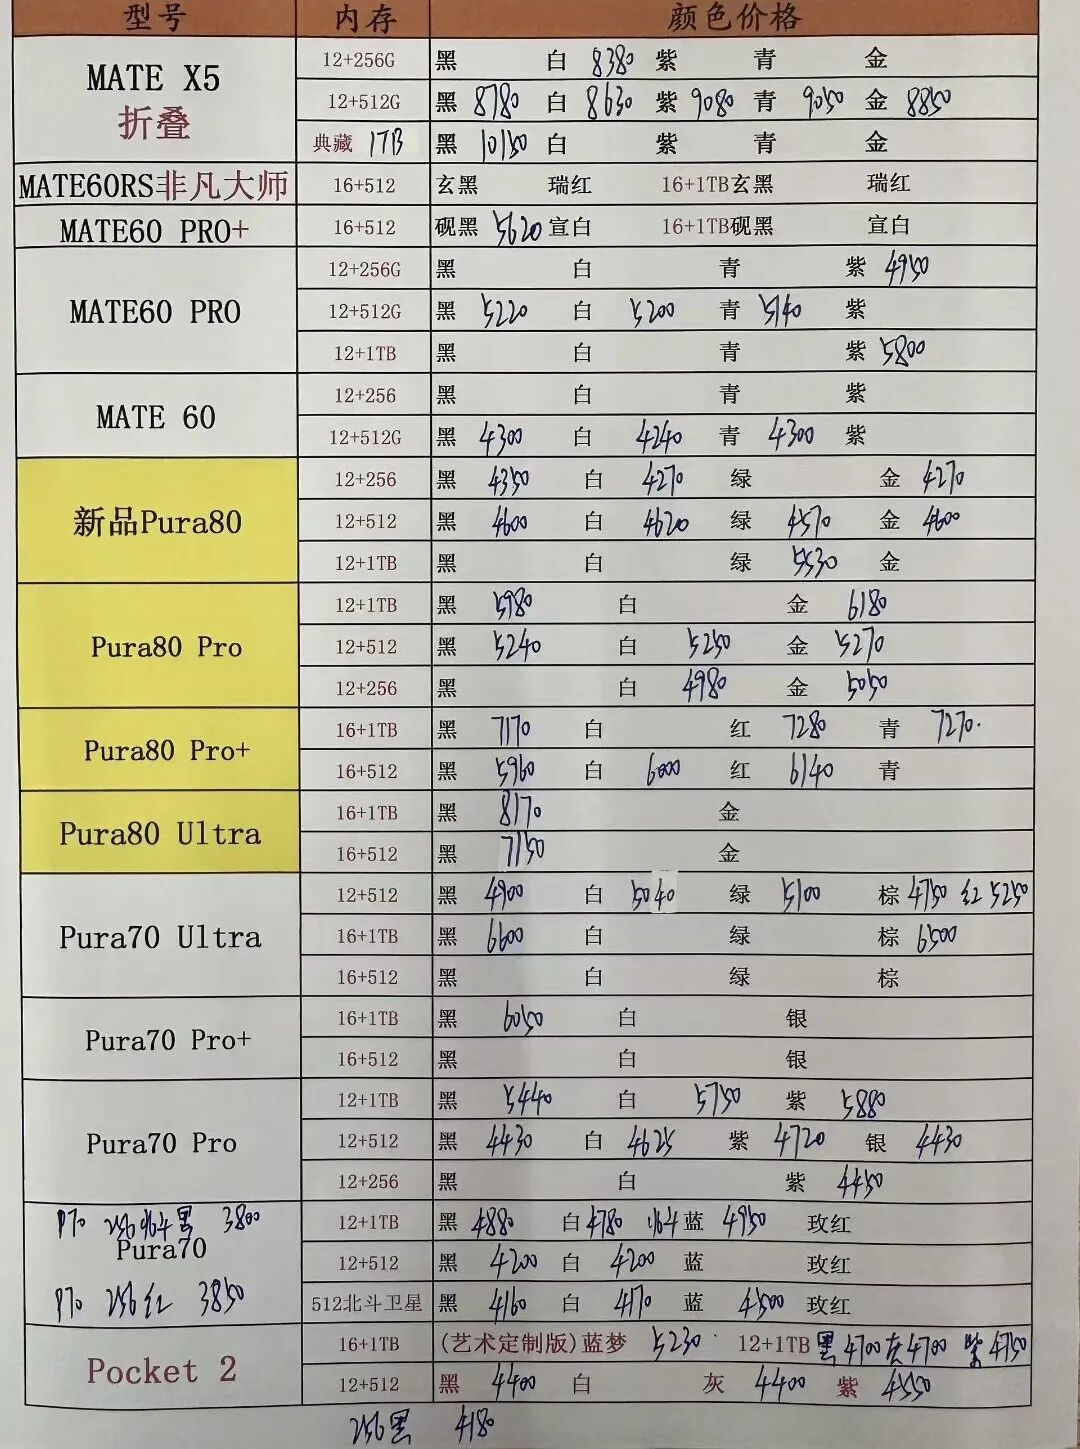 型号 内存 颜色价格
MATE X5 折叠 12+256G 黑 白 8380 紫 青 金
12+512G 黑 8780 白 8630 紫 9080 青 9050 金 8850
典藏 1TB 黑 10150 白 紫 青 金
MATE60RS非凡大师 16+512 玄黑 瑞红 16+1TB玄黑 瑞红
MATE60 PRO+ 16+512 砚黑 5620 宣白 16+1TB砚黑 宣白
MATE60 PRO 12+256G 黑 白 青 紫 4950
12+512G 黑 5220 白 5200 青 5140 紫
12+1TB 黑 白 青 紫 5800
MATE 60 12+256 黑 白 青 紫
12+512G 黑 4300 白 4240 青 4300 紫
新品Pura80 12+256 黑 4350 白 4270 绿 金 4270
12+512 黑 4600 白 4620 绿 4570 金 4600
12+1TB 黑 白 绿 5530 金
Pura80 Pro 12+1TB 黑 5980 白 金 6180
12+512 黑 5240 白 5250 金 5270
12+256 黑 白 4980 金 5050
Pura80 Pro+ 16+1TB 黑 7170 白 红 7280 青 7270
16+512 黑 5960 白 6000 红 6140 青
Pura80 Ultra 16+1TB 黑 8170 金
16+512 黑 7150 金
Pura70 Ultra 12+512 黑 4900 白 5040 绿 5100 棕 4750 红 5250
16+1TB 黑 6600 白 绿 棕 6500
16+512 黑 白 绿 棕
Pura70 Pro+ 16+1TB 黑 6050 白 银
16+512 黑 白 银
Pura70 Pro 12+1TB 黑 5440 白 5750 紫 5880
12+512 黑 4430 白 4625 紫 4720 银 4430
12+256 黑 白 紫 4450
P70 256 北斗黑 3800 12+1TB 黑 4880 白 4780 北斗 蓝 4950 玫红
Pura70 12+512 黑 4200 白 4200 蓝 玫红
P70 256 红 3850 512北斗卫星 黑 4160 白 4170 蓝 4500 玫红
Pocket 2 16+1TB (艺术定制版)蓝梦 5230 12+1TB 黑 4700 灰 4700 紫 4750
12+512 黑 4400 白 灰 4400 紫 4550
256黑 4180